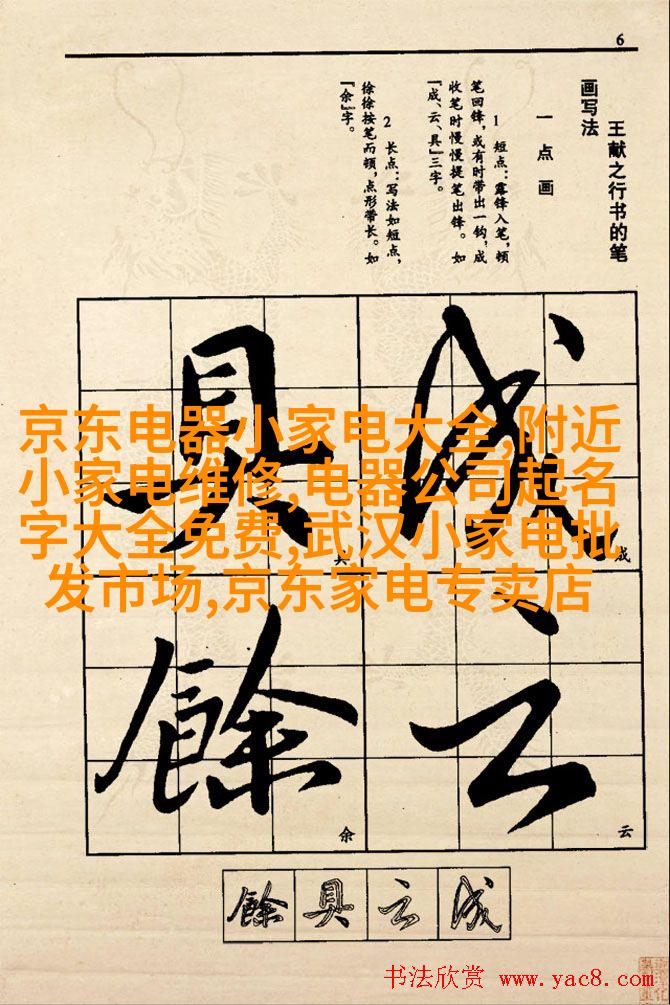 6
王献之行书的笔
画写法
一点画
1 短点：露锋入笔，顿
笔回锋，或有时带出一钩，成
收笔时慢慢提笔出锋。如
『成、云、具』三字。
2 长点：写法如短点，
徐徐按笔而顿，点形带长。如
『余』字。
成
具
云
餘
成
具
云
余
京东电器小家电大全,附近
小家电维修,电器公司起名
字大全免费,武汉小家电批
发市场,京东家电专卖店
餘具云成
书法欣赏 www.yac8.com